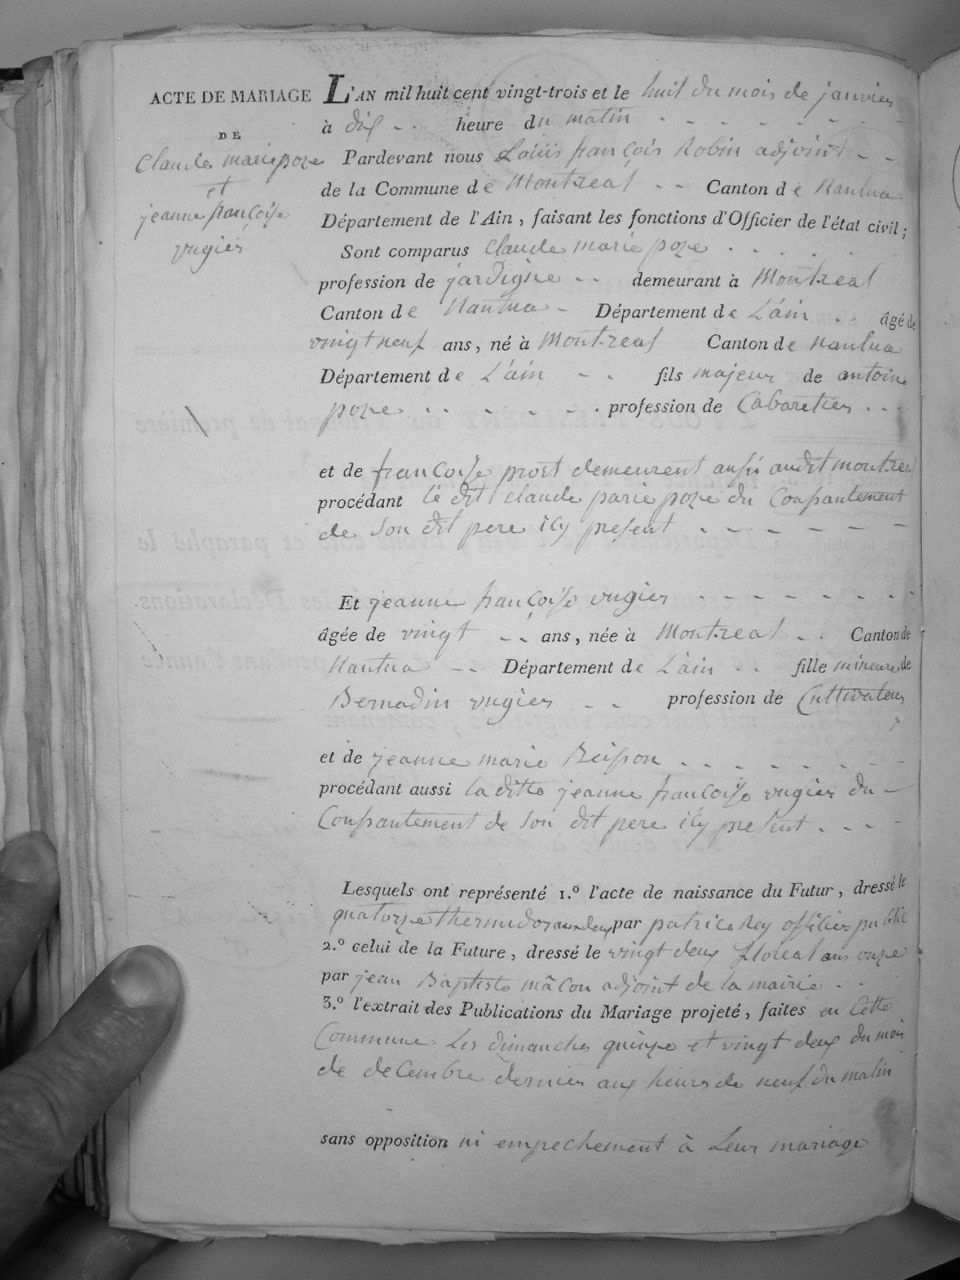 ACTE DE MARIAGE
DE
Claude marie poze
et
jeanne françoise
vugier
L'AN mil huit cent vingt-trois et le huit du mois de janvier
à dix heure du matin
Pardevant nous Louis françois Robin adjoint
de la Commune de Montreal Canton de Nantua
Département de l'Ain, faisant les fonctions d'Officier de l'état civil;
Sont comparus Claude marie poze
profession de jardigne demeurant à Montreal
Canton de Nantua Département de L'ain âgé de
vingt neuf ans, né à Montreal Canton de Nantua
Département de L'ain fils majeur de antoine
poze profession de Cabaretier
et de françoise prost demeurent aussi audit montreal
procédant le dit Claude marie poze du Consantement
de Son dit pere icy present
Et jeanne françoise vugier
âgée de vingt ans, née à Montreal Canton de
Nantua Département de L'ain fille mineure de
Bernadin vugier profession de Cultivateur
et de jeanne marie
procédant aussi la ditte jeanne françoise vugier du
Consantement de Son dit pere icy present
Lesquels ont représenté 1.º l'acte de naissance du Futur, dressé le
quatorze thermidor an deux par patrice Rey officier public
2.º celui de la Future, dressé le vingt deux floreal ans onze
par jean Baptiste mâcon adjoint de la mairie
3.º l'extrait des Publications du Mariage projeté, faites en Cette
Commune Les dimanches quinze et vingt deux du mois
de decembre dernier aux heures de neuf du matin
sans opposition ni empechement à Leur mariage